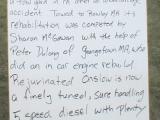 a total loss in an area of
accident. Towed to Rowley MA its
rehabilitation was completed by
Sharon McGowan with the help of
Peter Dulong of Georgetown MA, who
did an in car engine rebuild.
Rejuvinated Onslow is now
a finely tuned, sure handling
5 speed diesel with plenty